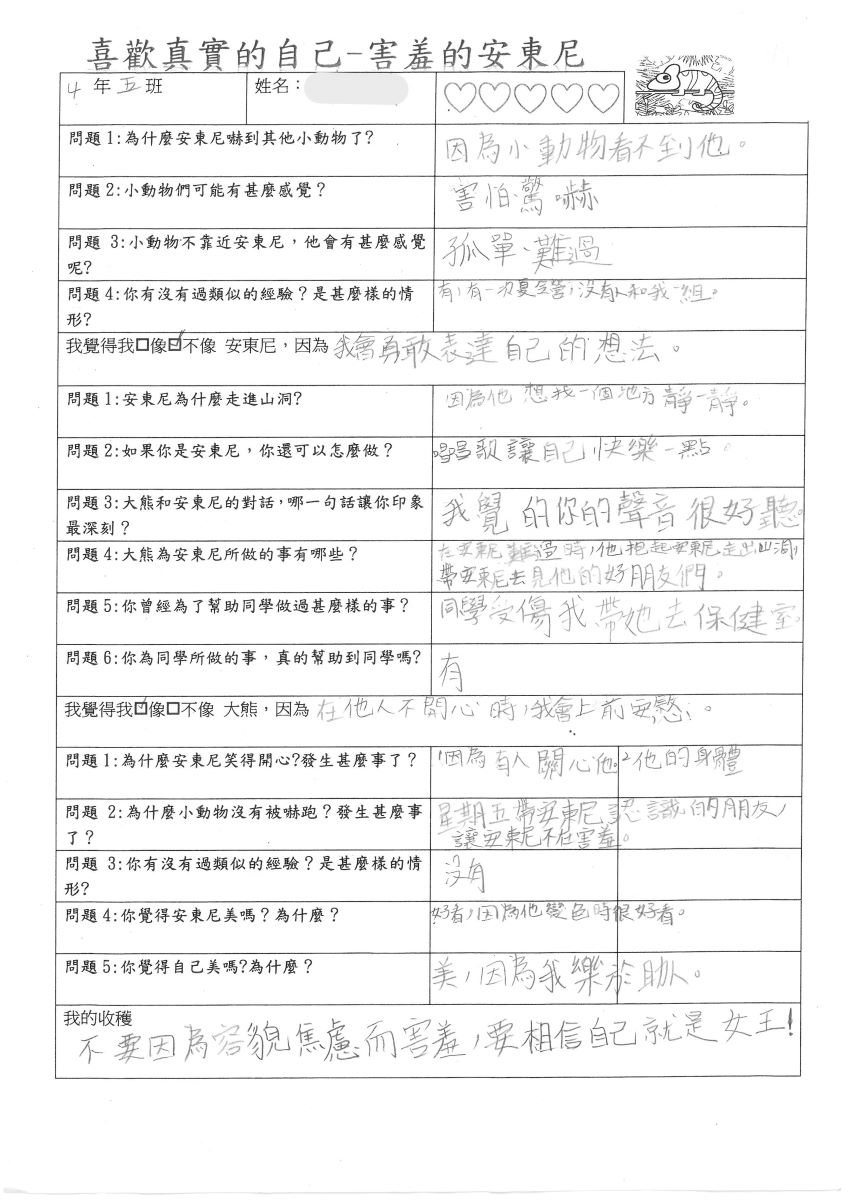 喜歡真實的自己-害羞的安東尼
4 年 五 班 姓名：
問題1:為什麼安東尼嚇到其他小動物了? 因為小動物看不到他。
問題2:小動物們可能有甚麼感覺？ 害怕、驚嚇
問題 3:小動物不靠近安東尼，他會有甚麼感覺
呢? 孤單、難過
問題4:你有沒有過類似的經驗？是甚麼樣的情
形? 有，有一次夏令營，沒有人和我一組。
我覺得我□像☑不像 安東尼，因為 我會勇敢表達自己的想法。
問題1:安東尼為什麼走進山洞? 因為他想找一個地方靜一靜。
問題2:如果你是安東尼，你還可以怎麼做？ 唱唱歌讓自己快樂一點。
問題3:大熊和安東尼的對話，哪一句話讓你印象
最深刻？ 我覺的你的聲音很好聽。
問題4:大熊為安東尼所做的事有哪些？ 在安東尼難過時，他抱起安東尼走出山洞，
帶安東尼去見他的好朋友們。
問題5:你曾經為了幫助同學做過甚麼樣的事？ 同學受傷我帶她去保健室。
問題6:你為同學所做的事，真的幫助到同學嗎? 有
我覺得我☑像□不像 大熊，因為 在他人不開心時，我會上前安慰。
問題1:為什麼安東尼笑得開心?發生甚麼事了？ 1因為有人關心他。 2他的身體
問題 2:為什麼小動物沒有被嚇跑？發生甚麼事
了？ 星期五帶安東尼認識的朋友，
讓安東尼不在害羞。
問題 3:你有沒有過類似的經驗？是甚麼樣的情
形? 沒有
問題4:你覺得安東尼美嗎？為什麼？ 好看，因為他變色時很好看。
問題5:你覺得自己美嗎?為什麼？ 美，因為我樂於助人。
我的收穫
不要因為容貌焦慮而害羞，要相信自己就是女王!